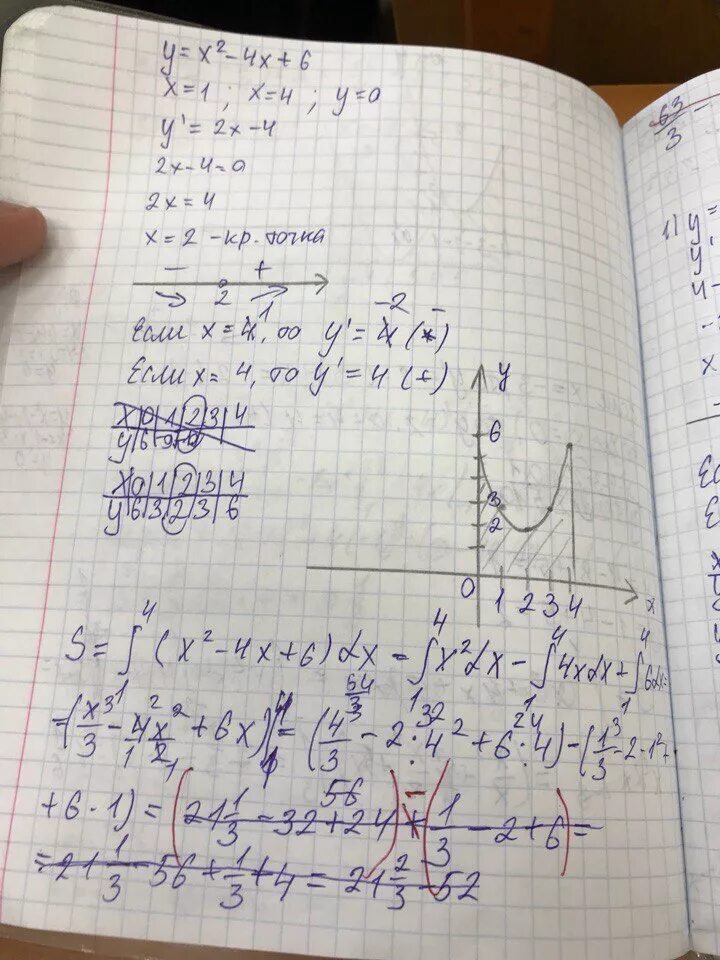 y = x² - 4x + 6
x = 1 ; x = 4 ; y = 0
y' = 2x - 4
2x - 4 = 0
2x = 4
x = 2 - кр. точка
- +
2
Если x = 1, то y' = -2 (-)
Если x = 4, то y' = 4 (+)
x | 0 | 1 | 2 | 3 | 4
y | 6 | 9
x | 0 | 1 | 2 | 3 | 4
y | 6 | 3 | 2 | 3 | 6
y
6
3
2
0 1 2 3 4 x
S = ∫₁⁴ (x² - 4x + 6) dx = ∫₁⁴ x² dx - ∫₁⁴ 4x dx + ∫₁⁴ 6 dx =
= (x³/3 - 4x²/2 + 6x) |₁⁴ = (4³/3 - 2 · 4² + 6 · 4) - (1³/3 - 2 · 1² +
64/3 32 24
+ 6 · 1) = (21 1/3 - 32 + 24) - (1/3 - 2 + 6) =
56
= 21 1/3 - 56 + 1/3 + 4 = 21 2/3 - 52
63/3 -
1) y =
y'
4 -
x